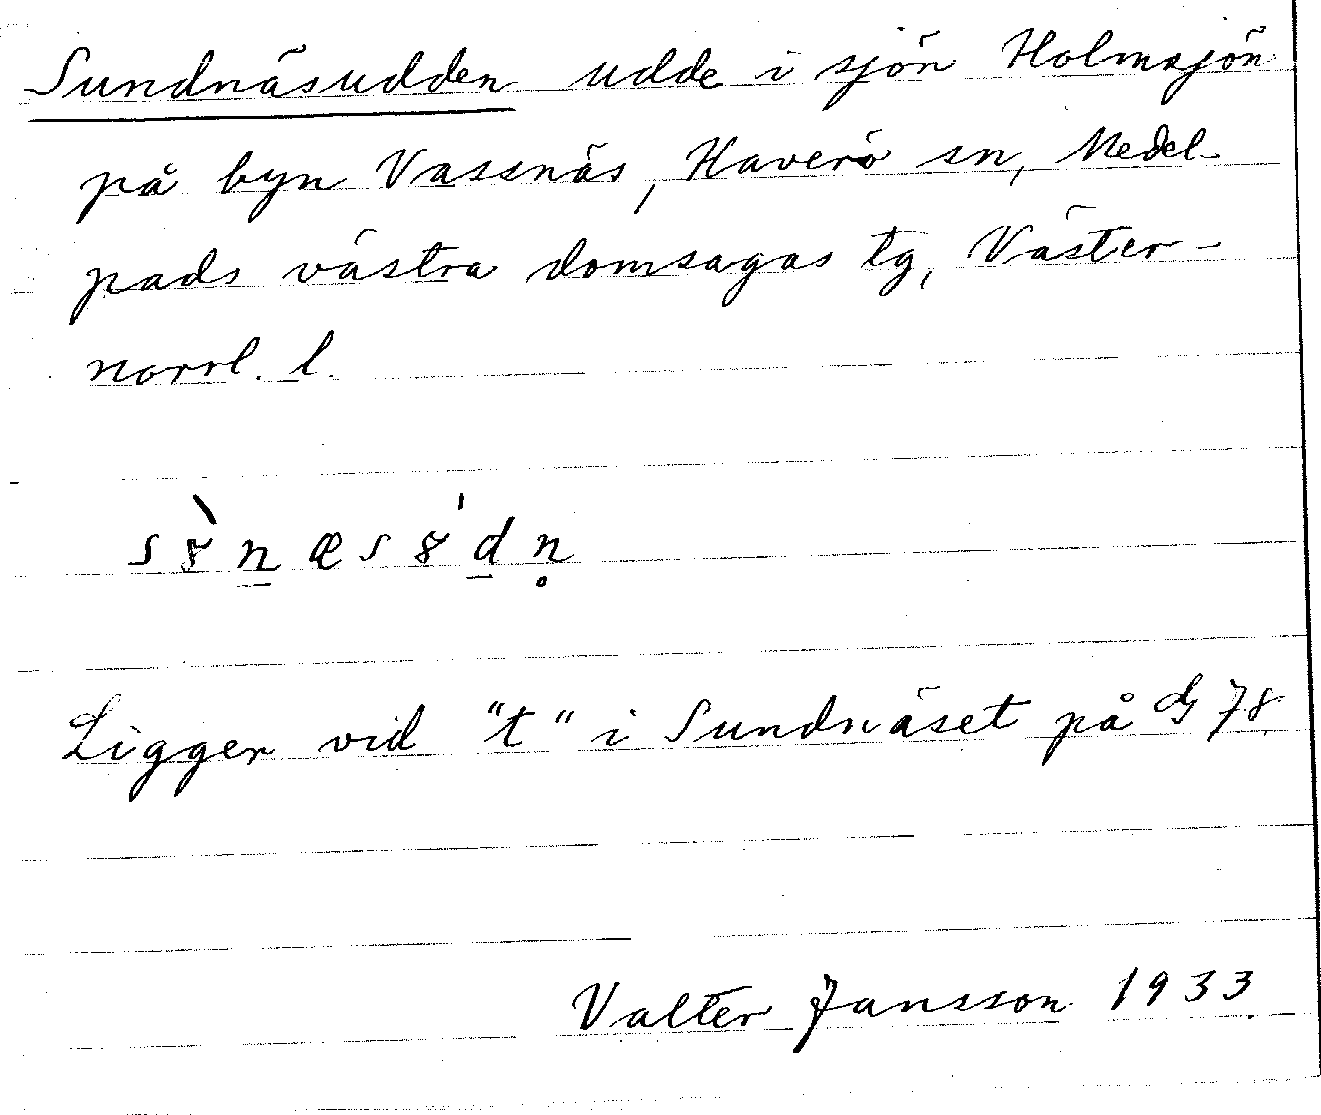 Sundnäsudden udde i sjön Holmsjön
på byn Vassnäs, Haverö sn, Medel-
pads västra domsagas tg, Väster-
norrl. l.
s8̀n̲æs8́d̲n̥
Ligger vid "t" i Sundnäset på G 78.
Valter Jansson 1933.